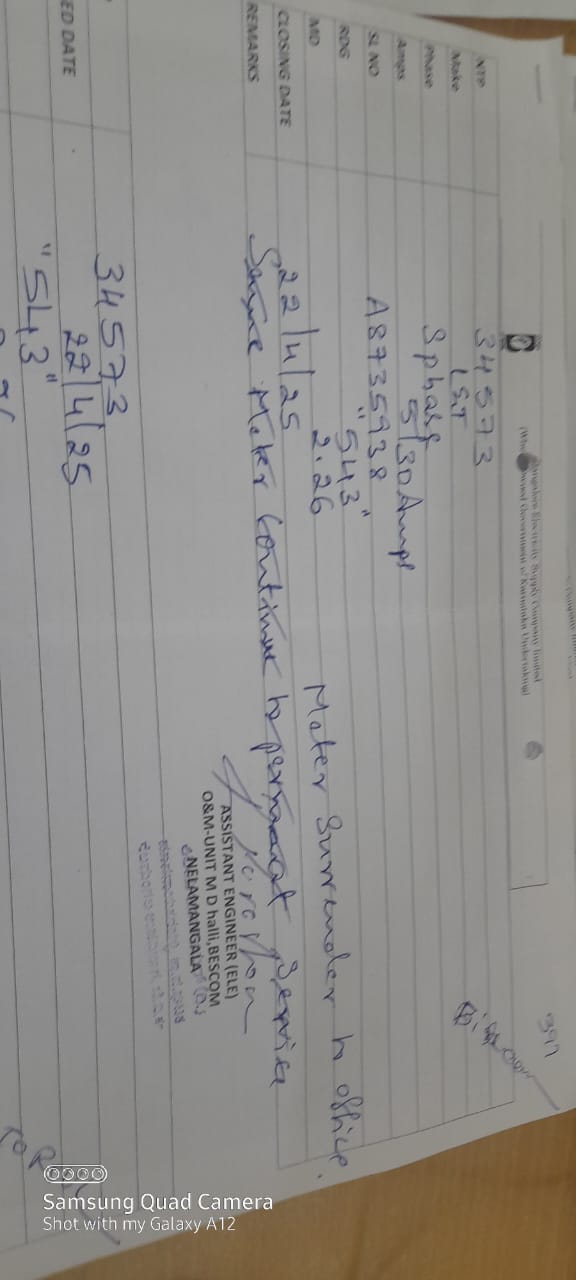 397
Bangalore Electricity Supply Company limited
Government of Karnataka Undertaking)
NTP 34573
Make L&T
Phase 3 phase
Amps 5/30 Amps
SL NO A8735938
RDG "543"
MD 2.26 Meter Surrender to office.
CLOSING DATE 22/4/25
REMARKS Same Meter Continue to permanent Service
ASSISTANT ENGINEER (ELE)
O&M-UNIT M D halli,BESCOM
NELAMANGALA
34573
ED DATE 22/4/25
"543"
Samsung Quad Camera
Shot with my Galaxy A12